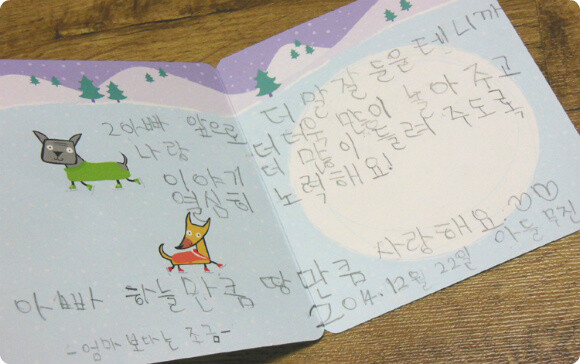 2아빠 앞으로
나랑
이야기
열심히
더 말 잘 들을 테니까
더더욱 많이 놀아 주고
더 많이 들려 주도록
노력해요!
아빠 하늘만큼 땅만큼 사랑해요.♡♡
-엄마 보다는 조금-
2014.12월 22일 아들 무진